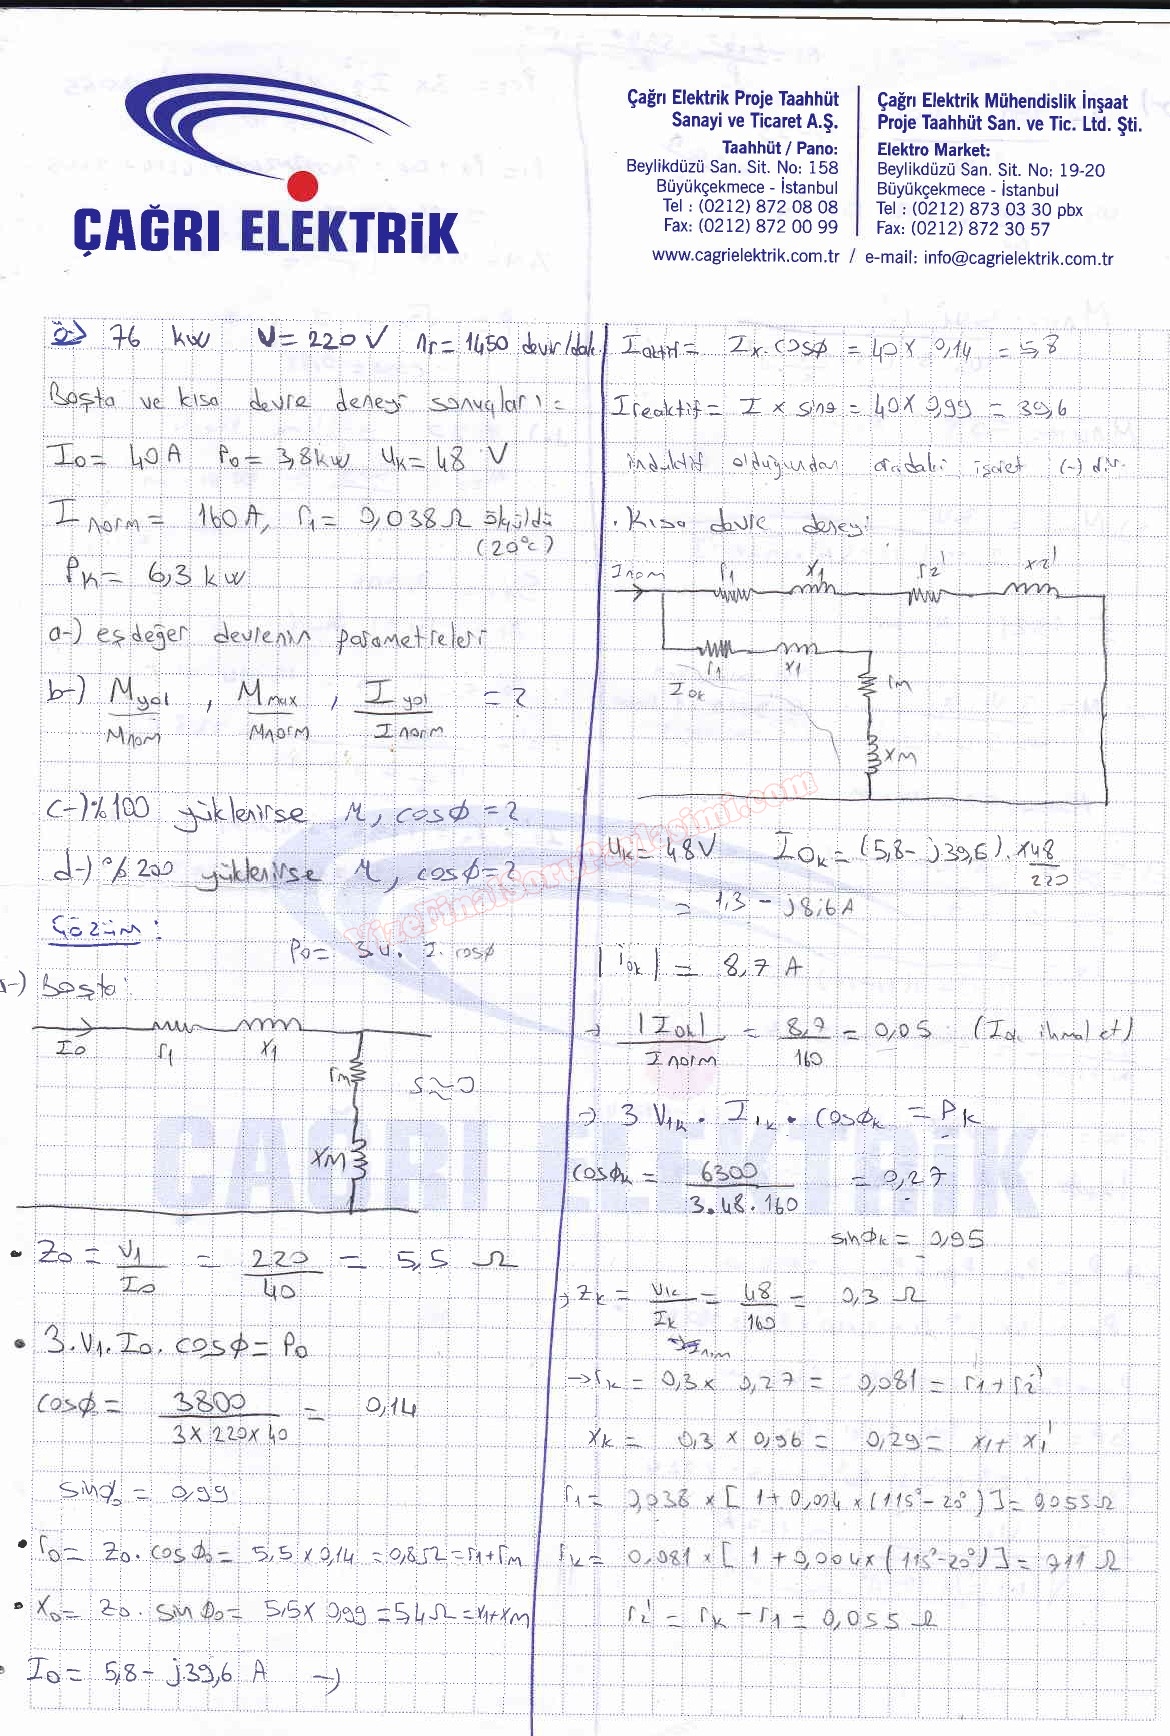 ÇAĞRI ELEKTRİK
Çağrı Elektrik Proje Taahhüt
Sanayi ve Ticaret A.Ş.
Taahhüt / Pano:
Beylikdüzü San. Sit. No: 158
Büyükçekmece - İstanbul
Tel : (0212) 872 08 08
Fax: (0212) 872 00 99
Çağrı Elektrik Mühendislik İnşaat
Proje Taahhüt San. ve Tic. Ltd. Şti.
Elektro Market:
Beylikdüzü San. Sit. No: 19-20
Büyükçekmece - İstanbul
Tel : (0212) 873 03 30 pbx
Fax: (0212) 872 30 57
www.cagrielektrik.com.tr / e-mail: info@cagrielektrik.com.tr
76 kw V=220V nr=1450 devir/dak.
Boşta ve kısa devre deneyi sonuçları:=
I0= 40A P0= 3,8kw Uk=48 V
Inorm= 160A, r1= 0,038Ω ölçüldü
(20°c)
Pk= 6,3 kw
a-) eşdeğer devrenin parametreleri
b-) Myol/Mnom , Mmax/Mnorm , Iyol/Inorm = ?
c-) %100 yüklenirse η, cosφ=?
d-) %200 yüklenirse η, cosφ=?
Çözüm:
P0= 3.U. I. cosφ
a-) Boşta:
I0 r1 x1
rm S≈0
XM
• Z0 = V1/I0 = 220/40 = 5,5 Ω
• 3.V1.I0.cosφ= P0
cosφ= 3800/3x220x40 = 0,14
sinφ0= 0,99
• r0= Z0.cosφ0= 5,5x0,14=0,8Ω=r1+rm
• X0= Z0. sinφ0= 5,5x0,99=5,4Ω=x1+xM
• I0= 5,8- j39,6 A →
Iaktif= Ix.cosφ = 40x 0,14 = 5,8
Ireaktif= I x sinφ = 40x 0,99 = 39,6
indüktif olduğundan aradaki işaret (-) dir.
• Kısa devre deneyi
Inom r1 x1 r2' x2'
r1 x1
I0k rM
XM
Uk= 48V I0k= (5,8-j39,6). x48/220
= 1,3 - j8,6A
|I0k| = 8,7 A
→ |I0k|/Inorm = 8,7/160 = 0,05 (I0k ihmal et)
→ 3 V1k. I1k. cosφk = Pk
cosφk= 6300/3.48.160 = 0,27
sinφk= 0,95
→ Zk = V1k/Ik = 48/160 = 0,3 Ω
→ rk = 0,3x 0,27= 0,081 = r1+r2'
xk= 0,3 x 0,96= 0,29= x1+ x1'
r1= 0,038 x [ 1+0,004x(115°-20°)]= 0,055Ω
rk= 0,081 x [ 1+0,004x(115°-20°)]= 0,11 Ω
r2' = rk - r1 = 0,055Ω
VizeFinalSoruPaylasimi.com
ÇAĞRI ELEKTRİK